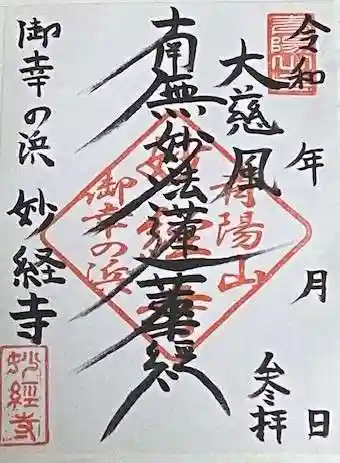 令和 年 月 日
参拝
大慈風
南無妙法蓮華経
御幸の浜 妙経寺
陽山
妙経寺
御幸の浜
妙經寺